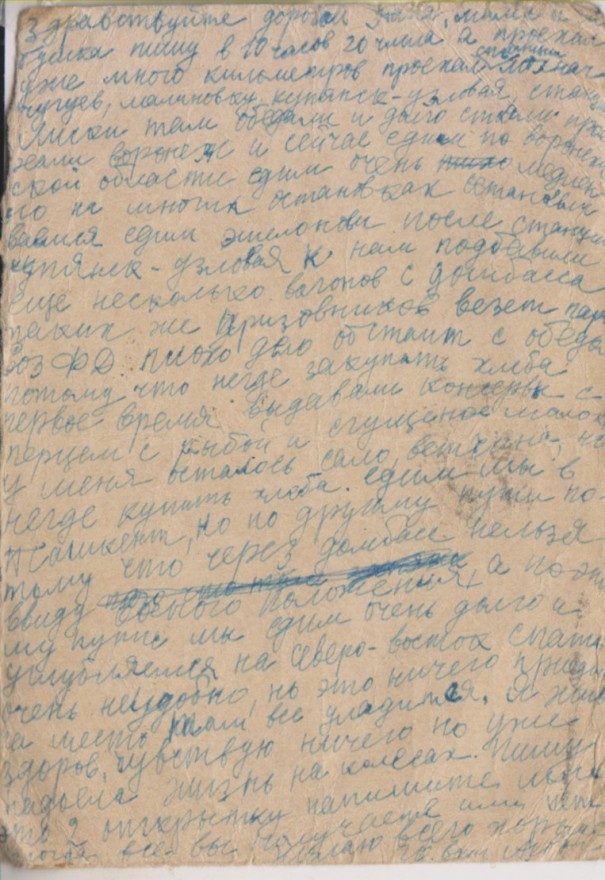 Здравствуйте дорогой папа, мама и
пишу в 10 часов 20 числа а проехал
уже много километров проехал
чугуев, малиновку, купянск-узловая,
Лиски там обедали и долго стояли про
ехали воронеж и сейчас едим по воронеж
ской области едим очень медлен
но на многих остановках останавли
ваемся едим эшелоном после станции
купянск-узловая к нам подбавили
еще несколько вагонов с донбасса
таких же призовников везет паро
воз ФД плохо дело обстоит с обедом
потому что негде закупать хлеба
первое время выдавали консервы с
перцем с рыбой и сгущеное молоко
у меня осталось сало, ветчина, но
негде купить хлеба. едим мы в
Ташкент, но по другому пути по-
тому что через домбасс нельзя
ввиду военого положения, а по это
му пути мы едим очень долго и
углубляемся на Северо-восток спать
очень неудобно, но это ничего приеди
на место, там все уладится. Я жив
здоров, чувствую ничего но уже
надоела жизнь на колесах. Пишу
это 2 открытку напишите
когда все вы получаете или нет
желаю всего хорошего